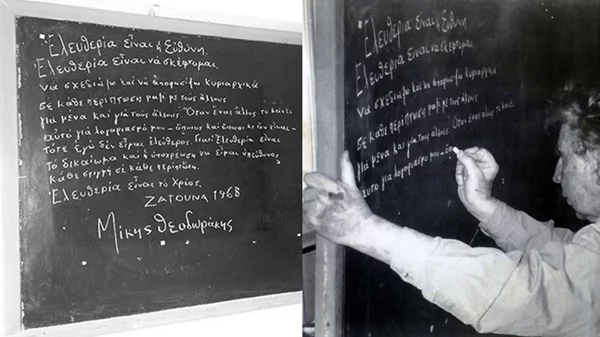 Ἐλευθερία εἶναι ἡ Εὐθύνη.
Ἐλευθερία εἶναι νὰ σκέφτομαι.
νὰ σχεδιάζω καὶ νὰ ἀποφασίζω κυριαρχικὰ
σὲ κάθε περίπτωση μαζὶ μὲ τοὺς ἄλλους
γιὰ μένα καὶ γιὰ τοὺς ἄλλους. Ὅταν ἕνας ἄλλος τὸ κάνει
αὐτὸ γιὰ λογαριασμό μου – ὅποιος καὶ ὅποιος κι ἂν εἶναι –
τότε ἐγὼ δὲν εἶμαι ἐλεύθερος. Γιατὶ Ἐλευθερία εἶναι
τὸ δικαίωμα καὶ ἡ ὑποχρέωση νὰ εἶμαι ὑπεύθυνος
κάθε στιγμὴ σὲ κάθε περίπτωση.
Ἐλευθερία εἶναι τὸ Χρέος.
ΖΑΤΟΥΝΑ 1968
Μίκης Θεοδωράκης
Ἐλευθερία εἶναι ἡ Εὐθύνη
Ἐλευθερία εἶναι νὰ σκέφτομαι
νὰ σχεδιάζω καὶ νὰ ἀποφασίζω κυριαρχικὰ
σὲ κάθε περίπτωση μαζὶ μὲ τοὺς ἄλλους
γιὰ μένα καὶ γιὰ τοὺς ἄλλους. Ὅταν ἕνας ἄλλος τὸ κάνει
αὐτὸ γιὰ λογαριασμό μου –